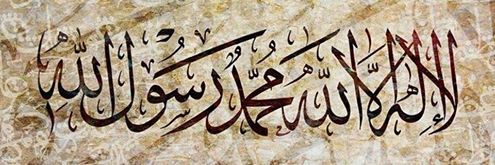 لَا إِلٰهَ إِلَّا اللّٰه مُحَمَّدٌ رَسُولُ اللّٰهِ